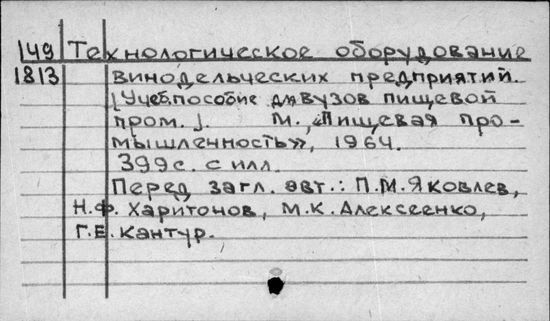 149 Технологическое оборудование
1813 винодельческих предприятий.
[Учеб.пособие для вузов пищевой
пром.]. М., "Пищевая про-
мышленность", 1964.
399с. с илл.
Перед загл. авт.: П.М.Яковлев,
Н.Ф. Харитонов, М.К.Алексеенко,
Г.Е.Кантур.